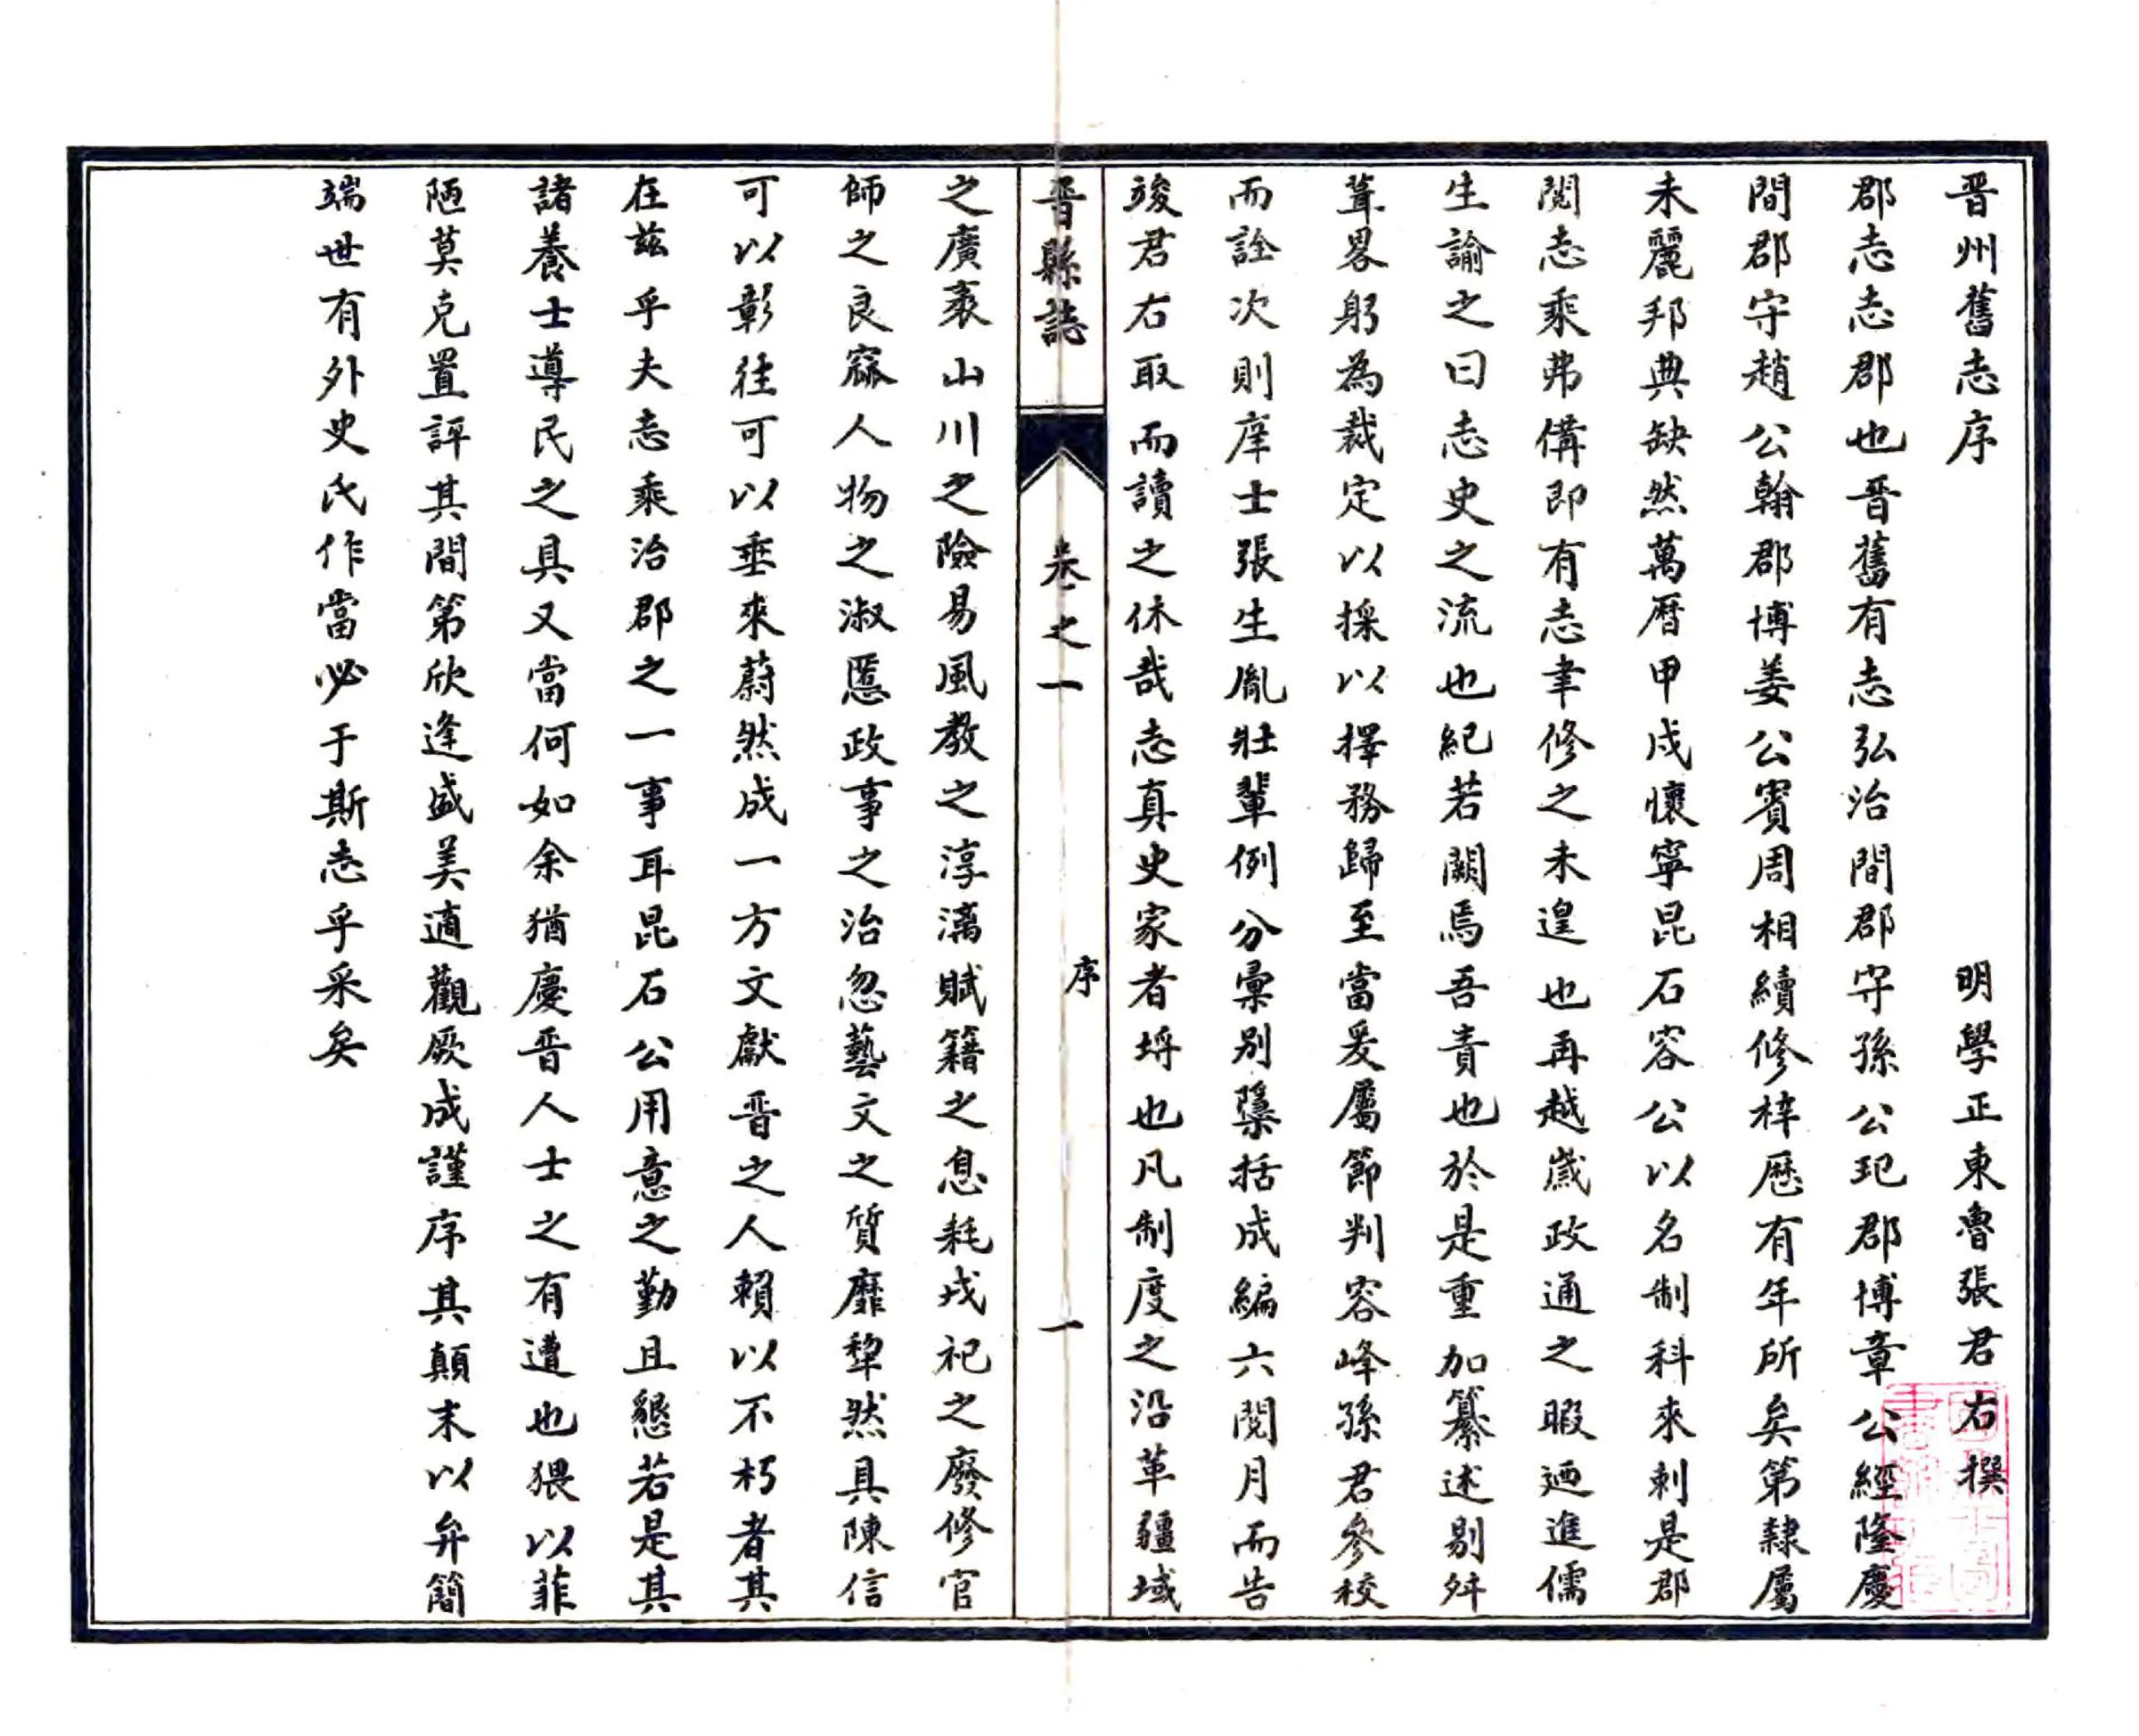 晋州舊志序　明學正東魯張君右撰
郡志志郡也晋舊有志弘治間郡守孫公玘郡博章公經隆慶
間郡守趙公翰郡博姜公賓周相續修梓歷有年所矣第隸屬
未麗邦典缺然萬曆甲戍懷寧昆石容公以名制科來剌是郡
閱志乘弗備即有志聿修之未遑也再越歲政通之暇迺進儒
生諭之曰志史之流也紀若闕焉吾責也於是重加纂述剔舛
葺畧躬為裁定以採以擇務歸至當爰屬節判容峰孫君參校
而詮次則庠士張生胤壯輩例分彙別檃括成編六閱月而告
竣君右取而讀之休哉志真史家者埒也凡制度之沿革疆域
晋縣誌　卷之一　序　一
之廣袤山川之險易風教之淳漓賦籍之息耗戎祀之廢修官
師之良窳人物之淑慝政事之治忽藝文之質靡犂然具陳信
可以彰往可以垂來蔚然成一方文獻晋之人賴以不朽者其
在兹乎夫志乘治郡之一事耳昆石公用意之勤且懇若是其
諸養士導民之具又當何如余猶慶晋人士之有遭也猥以菲
陋莫克置評其間第欣逢盛美適觀厥成謹序其顛末以弁簡
端世有外史氏作當必于斯志乎采矣